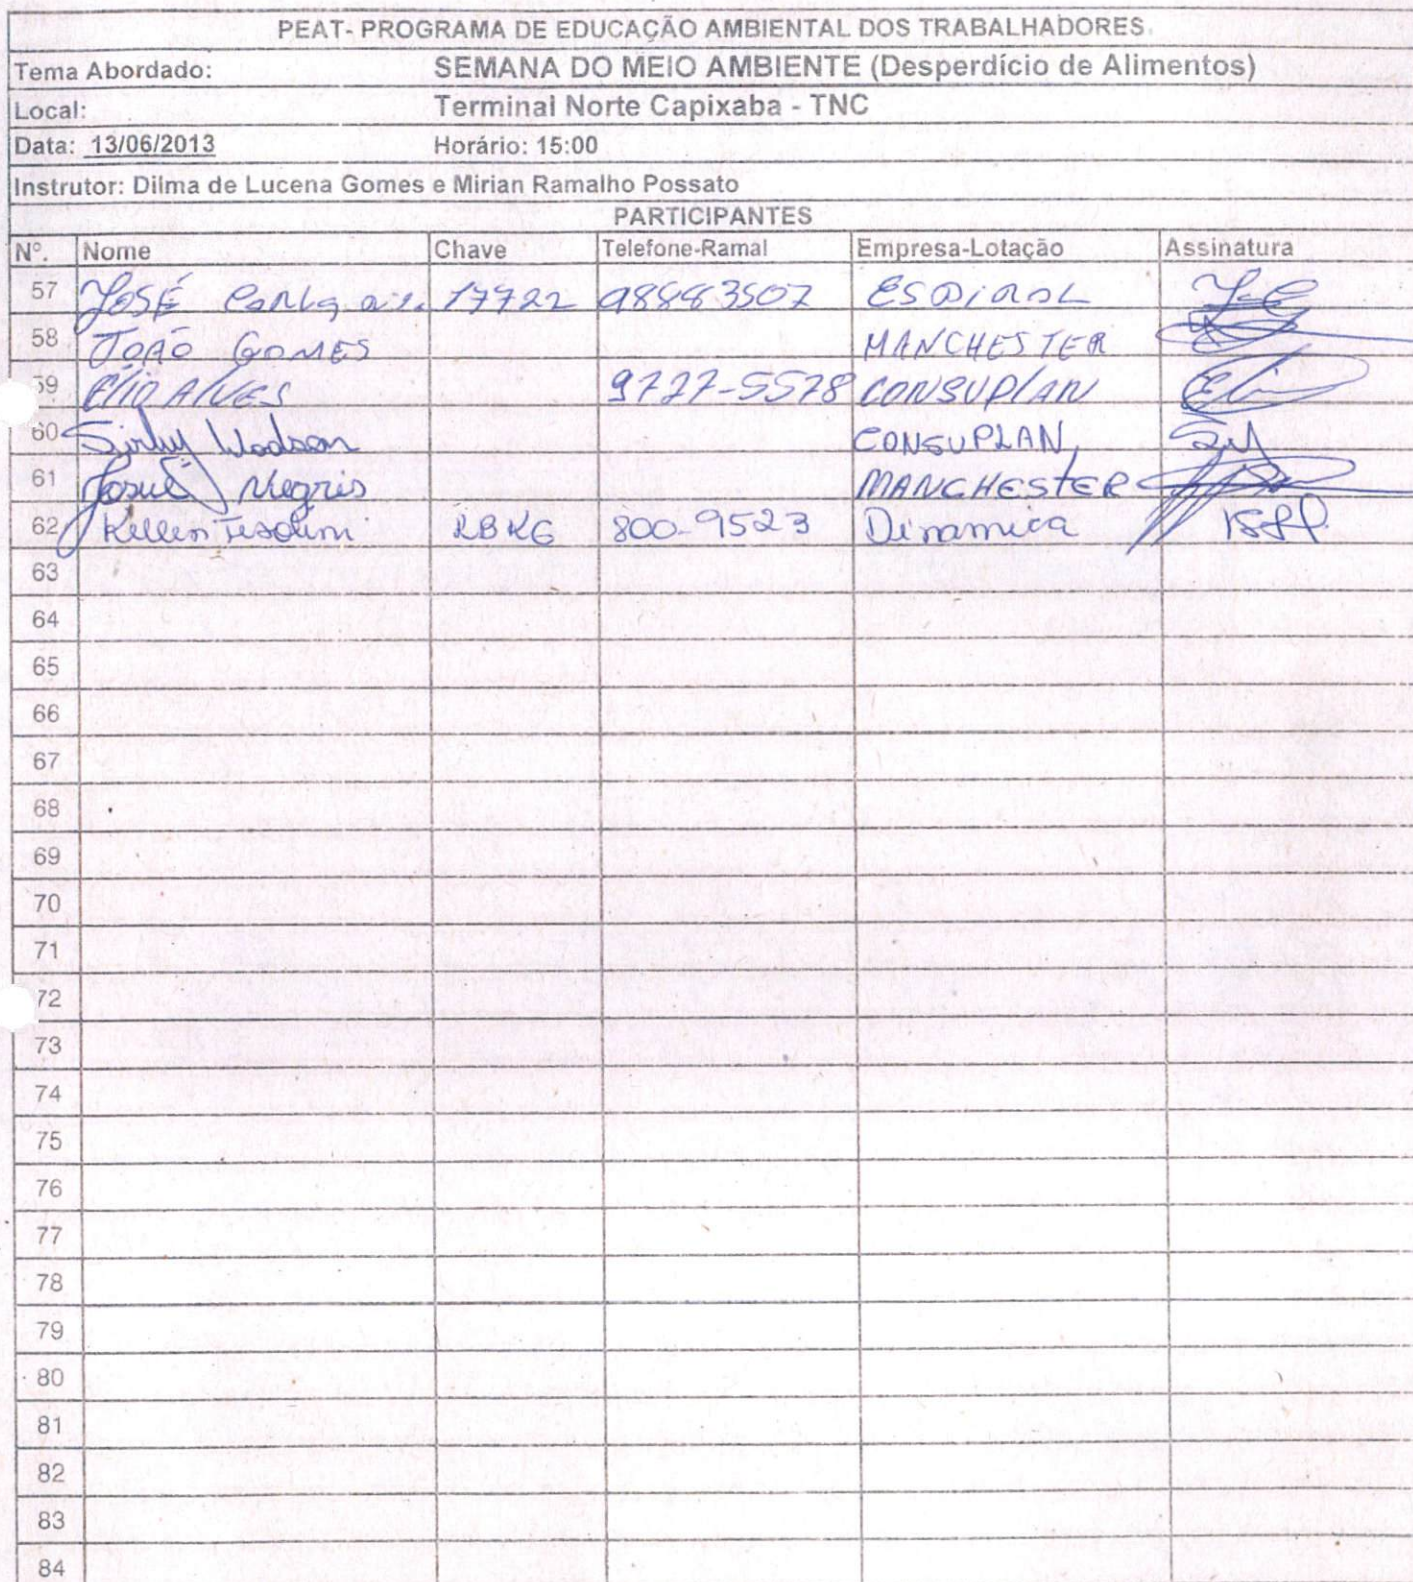 PEAT- PROGRAMA DE EDUCAÇÃO AMBIENTAL DOS TRABALHADORES
Tema Abordado: SEMANA DO MEIO AMBIENTE (Desperdício de Alimentos)
Local: Terminal Norte Capixaba - TNC
Data: 13/06/2013 Horário: 15:00
Instrutor: Dilma de Lucena Gomes e Mirian Ramalho Possato
PARTICIPANTES
Nº. Nome Chave Telefone-Ramal Empresa-Lotação Assinatura
57 JOSÉ 98883507
58 JOÃO GOMES MANCHESTER
59 Elio ALVES 9727-5578 CONSUPLAN
60 CONSUPLAN
61 Josué Negris MANCHESTER
62 Kellen 800-9523 Dinamica
63
64
65
66
67
68
69
70
71
72
73
74
75
76
77
78
79
80
81
82
83
84